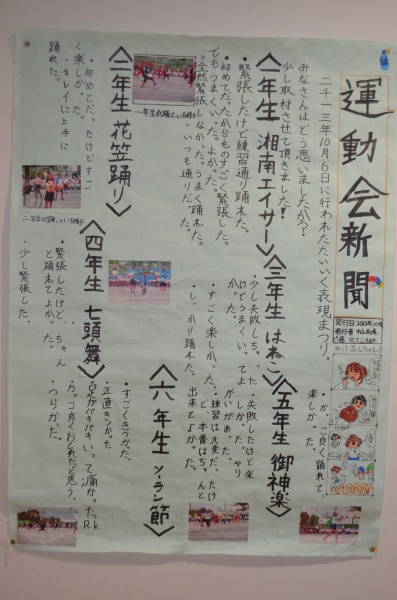 運動会新聞
発行日 2013年10月
発行者
二千十三年10月6日に行われたたいいく表現まつり。
みなさんはどう思いましたか?
少し取材させて頂きました!
〈一年生 湘南エイサー〉
・緊張したけど練習通り踊れた。
・初めてだったからものすごく緊張した。
でもうまくいった。よかった。
・全然緊張しなかった。うまく踊れた。
いつも通りだった。
〈二年生 花笠踊り〉
・初めてだったけどすごく楽しかった。
・キレイに上手に踊れた。
〈三年生 はねこ〉
・少し失敗しちゃったけどうまくいってよかった。
・すごく楽しかった。
・しっかり踊れた。
〈四年生 七頭舞〉
・緊張したけど、ちゃんと踊れてよかった。
・少し緊張した。
〈五年生 御神楽〉
・かっこ良く踊れて、楽しかった。
・失敗したけど楽しかった。やりがいがあった。
・練習は大変だったけど、本番はちゃんと出来てよかった。
〈六年生 ソーラン節〉
・すごくきつかった。
・正直きつかった
・足がバキバキいって痛かった。R.K
・かっこ良くおどれたと思う。
・つらかった。